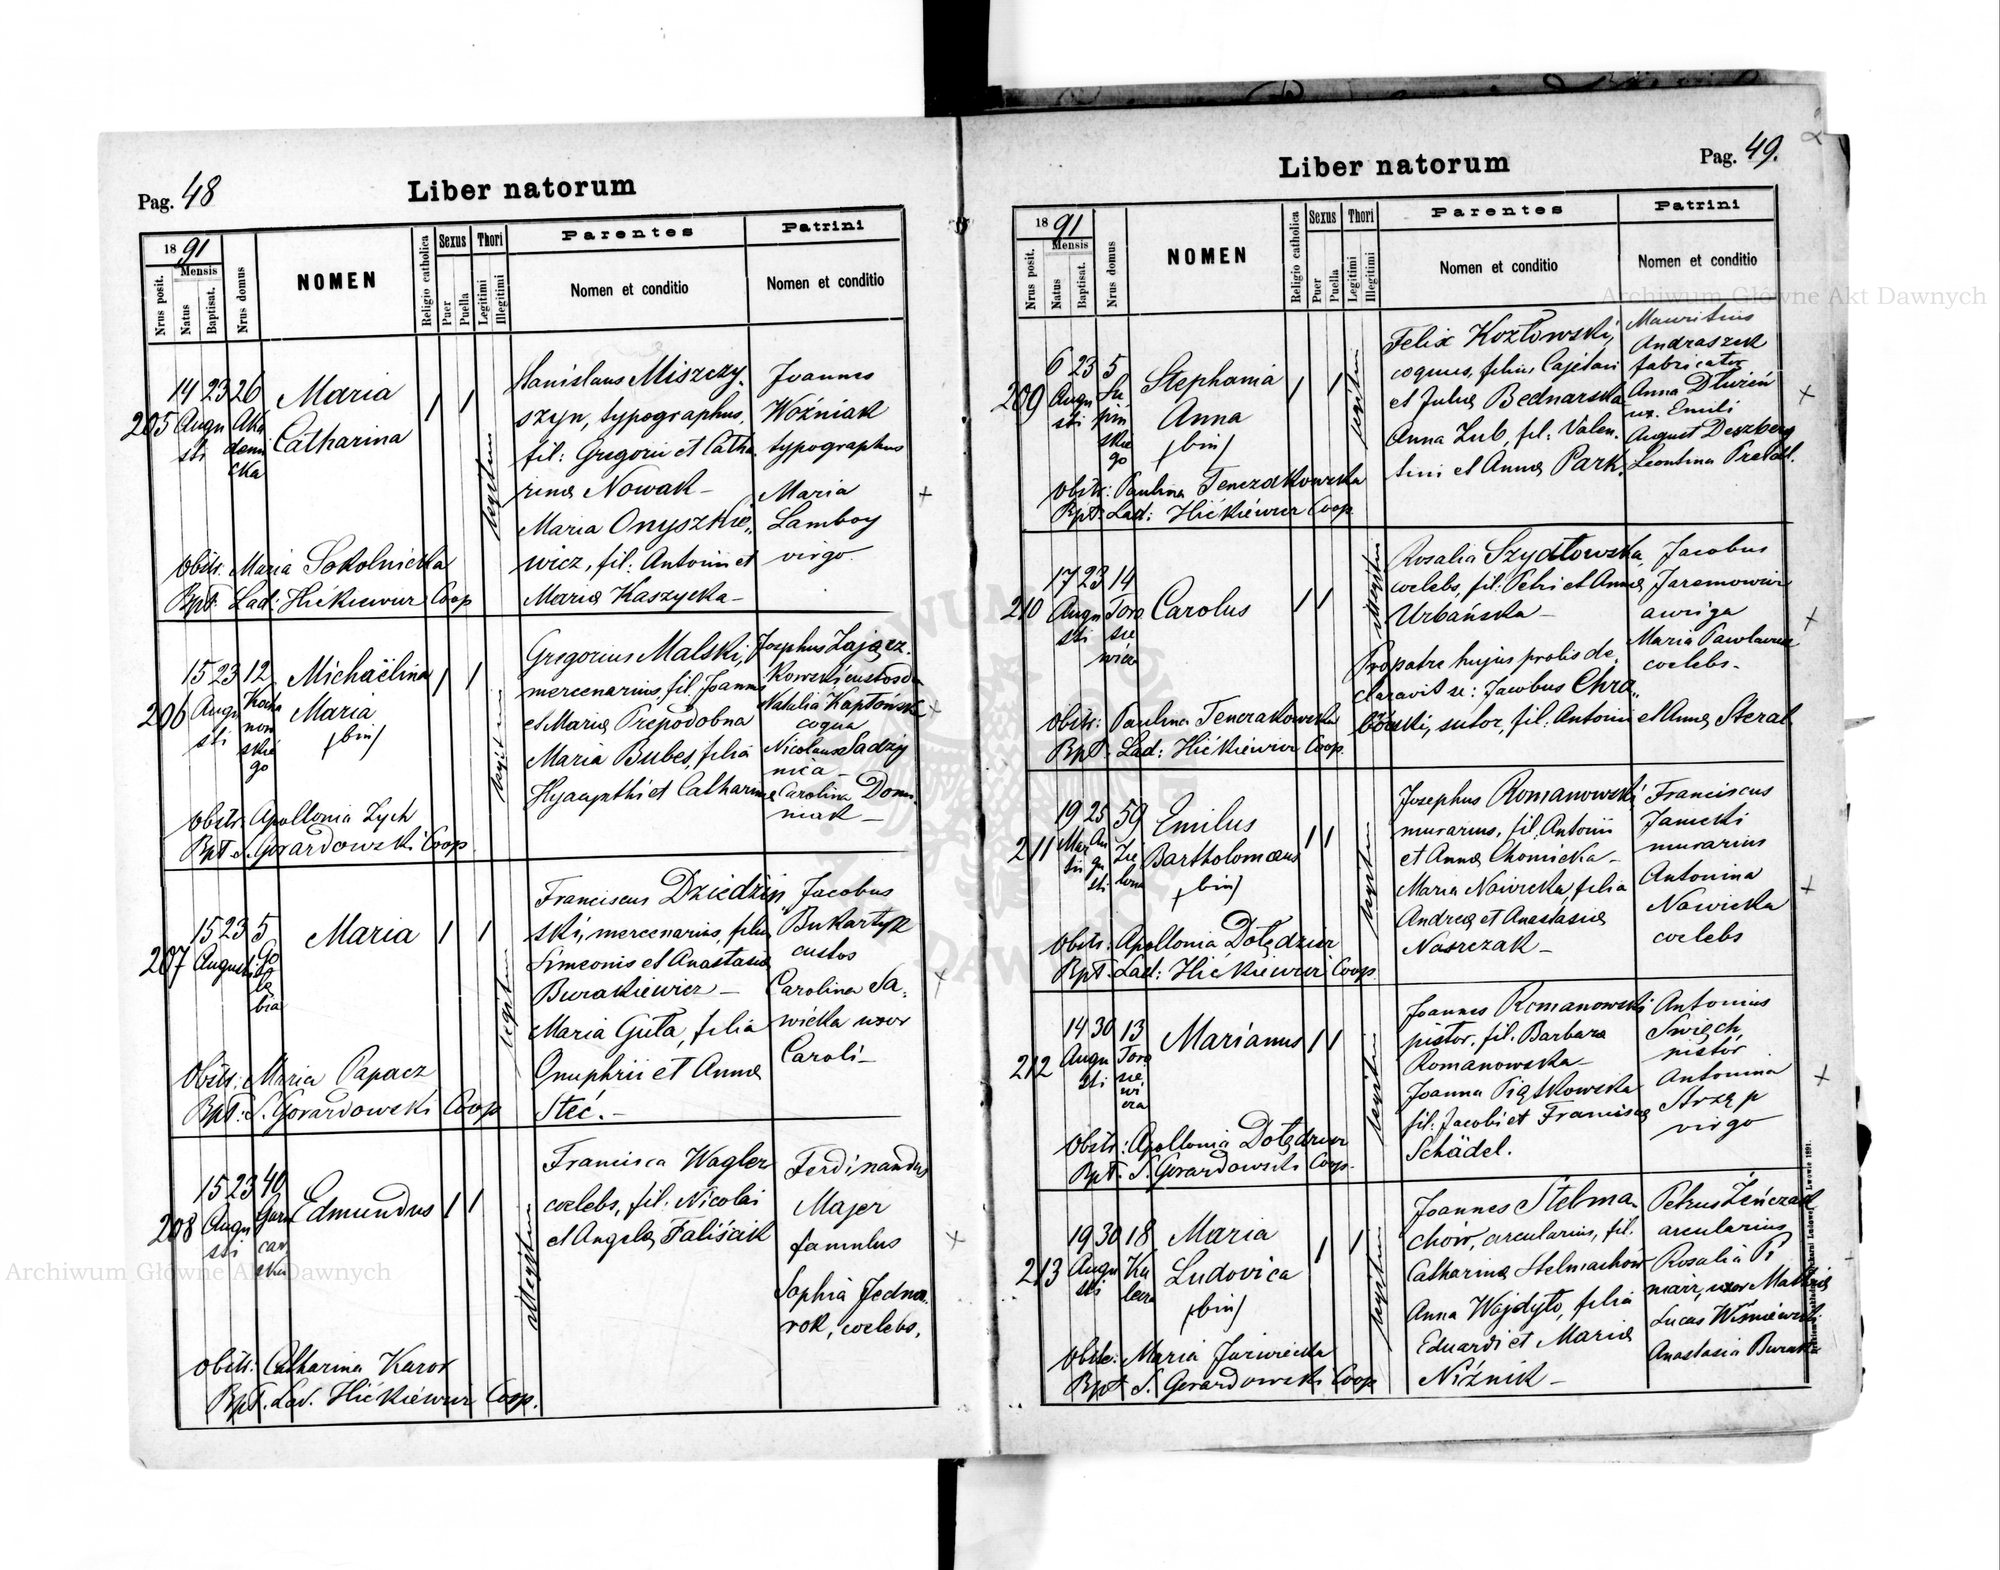 Pag. 48
Liber natorum
1891
Mensis
Nrus posit.
Natus
Baptisat.
Nrus domus
NOMEN
Religio catholica
Sexus
Puer
Puella
Thori
Legitimi
Illegitimi
Parentes
Nomen et conditio
Patrini
Nomen et conditio
205
14 23 26
Augu
sti
Aka
demi
cka
Maria
Catharina
legitim
Stanislaus Miszczy-
szyn, typographus,
fil: Gregorii et Catha
rina Nowak-
Maria Onyszkie„
wicz, fil: Antonii et
Maria Kaszycka-
Joannes
Woźniak
typographus
Maria
Lamboy
virgo
Obstr: Maria Sokolnicka
Bpt: Lad: Hićkiewicz Coop
206
15 23 12
Augu
sti
Kocha
now
skie
go
Michaëlina
Maria
(bin)
legitim
Gregorius Malski,
mercenarius, fil. Joannis
et Maria Prepodobna
Maria Bubes, filia
Hyacynthi et Catharina
Josephus Zającz.
kowski custos
Natalia
coqua
Nicolaus Sadzy
nica-
Carolina Domi
niak-
Obstr: Apollonia Zych
Bpt S. Gorardowski Coop.
207
15 23 5
Augusti
Go
łę
bia
Maria
legitim
Franciscus Dziedziń
ski, mercenarius, filius
Simeonis et Anastasia
Burakiewicz -
Maria Guła, filia
Onuphrii et Anna
Steć.-
Jacobus
Bukartyk
custos
Carolina Sa,
wicka uxor
Caroli-
Obstr: Maria Papacz
Bpt: S. Gorardowski Coop
208
15 23 40
Augu
sti
Garn
car
ska
Edmundus
illegitim
Francisca Wagler
coelebs, fil: Nicolai
et Angela Faliśzak
Ferdinandus
Majer
famulus
Sophia Jedna.
rok, coelebs,
Obstr: Catharina Karov
Bpt. Lad. Hićkiewicz Coop.
Pag. 49.
Liber natorum
1891
Mensis
Nrus posit.
Natus
Baptisat.
Nrus domus
NOMEN
Religio catholica
Sexus
Puer
Puella
Thori
Legitimi
Illegitimi
Parentes
Nomen et conditio
Patrini
Nomen et conditio
209
6 23 5
Augu
sti
Su
pin
skie
go
Stephania
Anna
(bin)
legitim
Felix Kozłowski,
coquus, filius Cajetani
et Julia Bednarska
Anna Zub, fil: Valen.
tini et Anna Park.
Mauritius
Andraszek
fabricator
Anna
ux. Emili
August Deszberg
Leontina
Obstr: Paulina Tenczakowska
Bpt: Lad: Hićkiewicz Coop
210
17 23 14
Augu
sti
Toro
sie
wicza
Carolus
illegitim
Rosalia Szydłowska,
coelebs, fil: Petri et Anna
Urbańska-
Pro patre hujus prolis de„
claravit se: Jacobus Chra„
bówski, sutor, fil: Antonii et Anna Steral
Jacobus
Jaremowicz
auriga
Maria
coelebs-
Obstr: Paulina Tenczakowska
Bpt: Lad: Hićkiewicz Coop.
211
19 25 59
Mar
tii
Au
gu
sti
Zie
lona
Emilus
Bartholomæus
(bin)
legitim
Josephus Romanowski,
murarius, fil. Antonii
et Anna Chomicka-
Maria Nowicka, filia
Andrea et Anastasia
Nasrczak-
Franciscus
Janicki
murarius
Antonina
Nowicka
coelebs
Obstr: Apollonia Dołędzior
Bpt: Lad: Hićkiewicz Coop.
212
14 30 13
Augu
sti
Toro
sie
wi
cza
Marianus
legitim
Joannes Romanowski
pistor, fil. Barbara
Romanowska-
Joanna Piątkowska
fil: Jacobi et Francisca
Schädel.
Antonius
Święch,
pistor
Antonina
Strzęp
virgo
Obstr: Apollonia Dołędzior
Bpt. S. Gorardowski Coop.
213
19 30 18
Augu
sti
Ka
lecza
Maria
Ludovica
(bin)
legitim
Joannes Stelma
chów, arcularius, fil.
Catharina Stelmachów
Anna Wojdyło, filia
Eduardi et Maria
Niźnik-
Petrus Zeńczak
arcularius
Rosalia
uxor
Lucas Wiśniewski
Anastasia
Obstr: Maria Jurwiecka
Bpt S. Gorardowski Coop
Archiwum Główne Akt Dawnych
Archiwum Główne Akt Dawnych